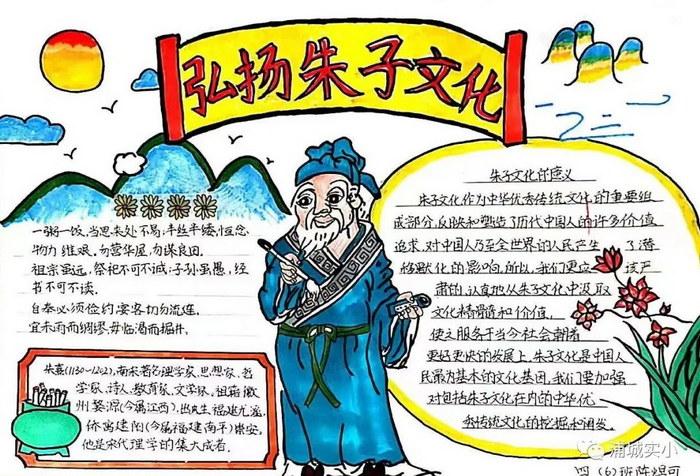 弘扬朱子文化
一粥一饭,当思来处不易;半丝半缕,恒念
物力维艰。勿营华屋,勿谋良田。
祖宗虽远,祭祀不可不诚;子孙虽愚,经
书不可不读。
自奉必须俭约,宴客切勿流连。
宜未雨而绸缪,毋临渴而掘井。
朱熹(1130~1202),南宋著名理学家、思想家、哲
学家、诗人、教育家、文学家。祖籍徽
州婺源(今属江西),出生福建尤溪,
侨寓建阳(今属福建南平)崇安,
他是宋代理学的集大成者。
朱子文化的意义
朱子文化作为中华优秀传统文化的重要组
成部分,反映和塑造了历代中国人的许多价值
追求,对中国人乃至全世界的人民产生了潜
移默化的影响。所以,我们更应该严
肃的、认真地从朱子文化中汲取
文化精髓和价值,
使之服务于当今社会朝着
更好更快的发展上,朱子文化是中国人
民最为基本的文化基因,我们要加强
对包括朱子文化在内的中华优
秀传统文化的挖掘和阐发。
浦城实小
四(6)班 陈煜可